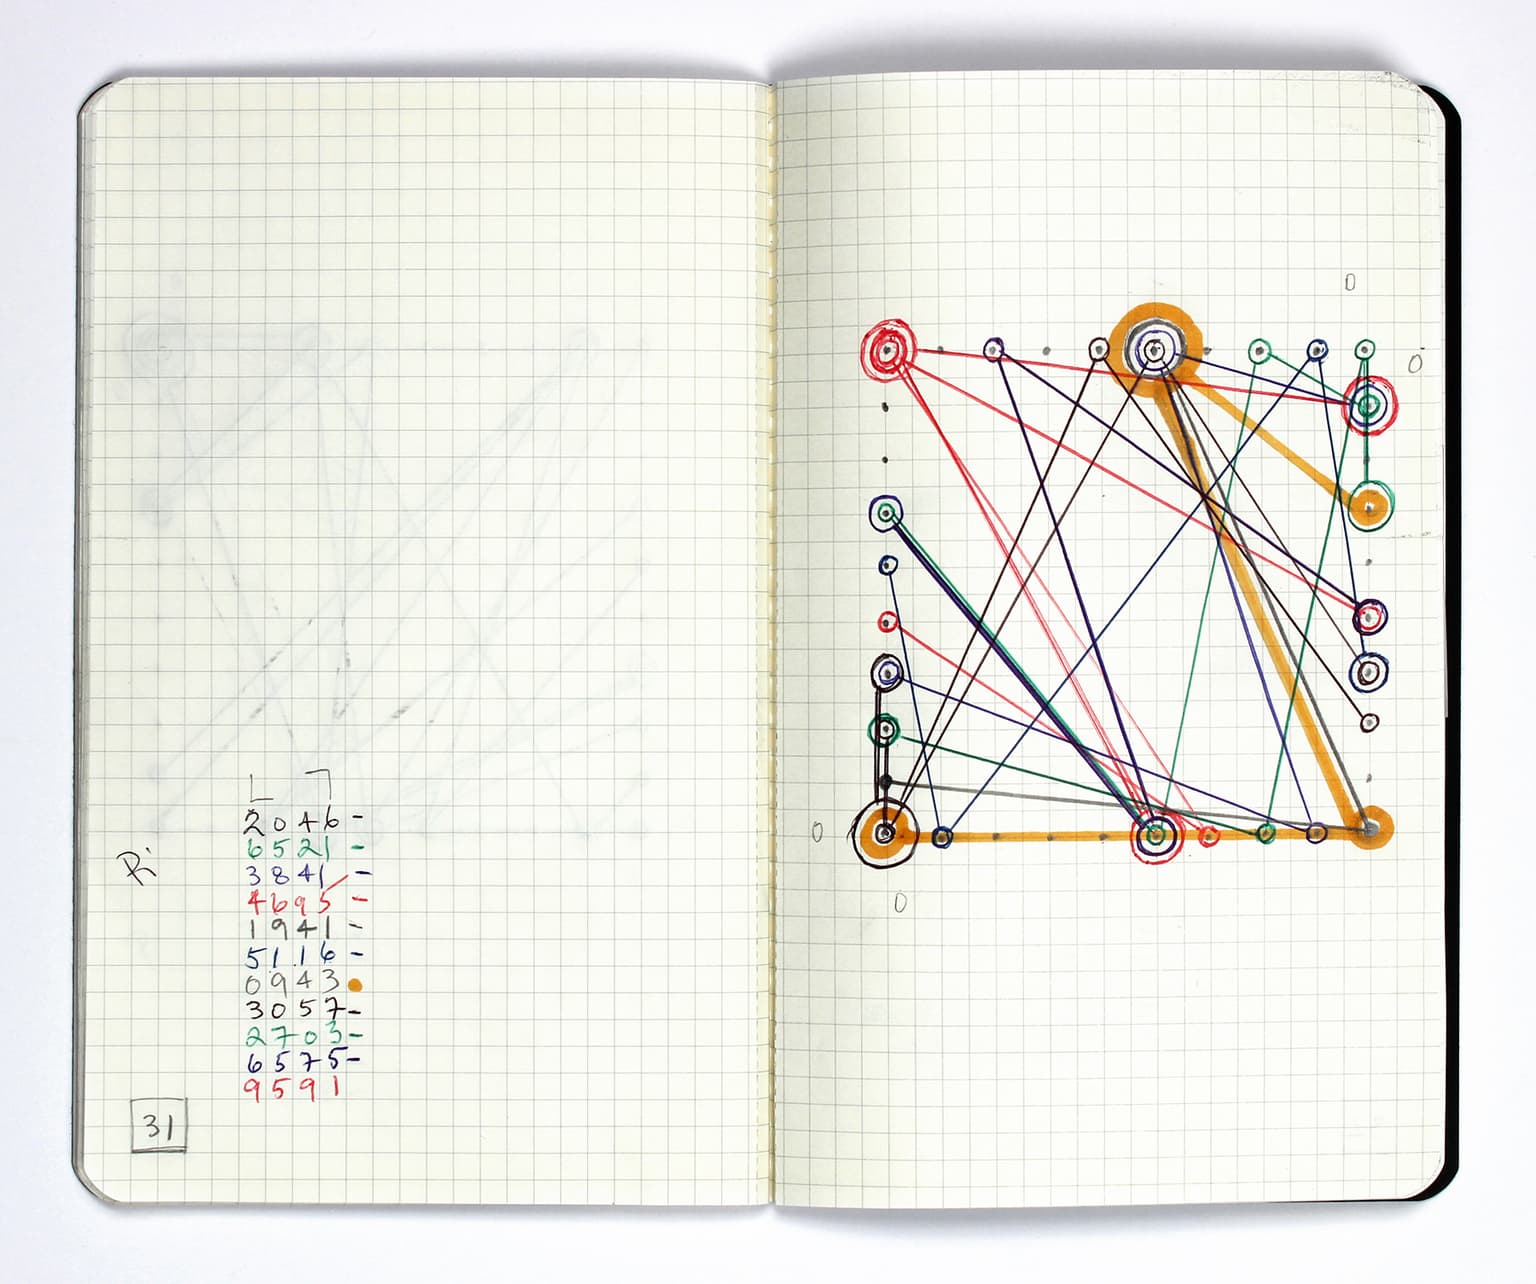 2046-
6521-
3841-
Ri
4695-
1941-
5116-
0943
3057-
2703-
6575-
9591
31
0
0
0
0